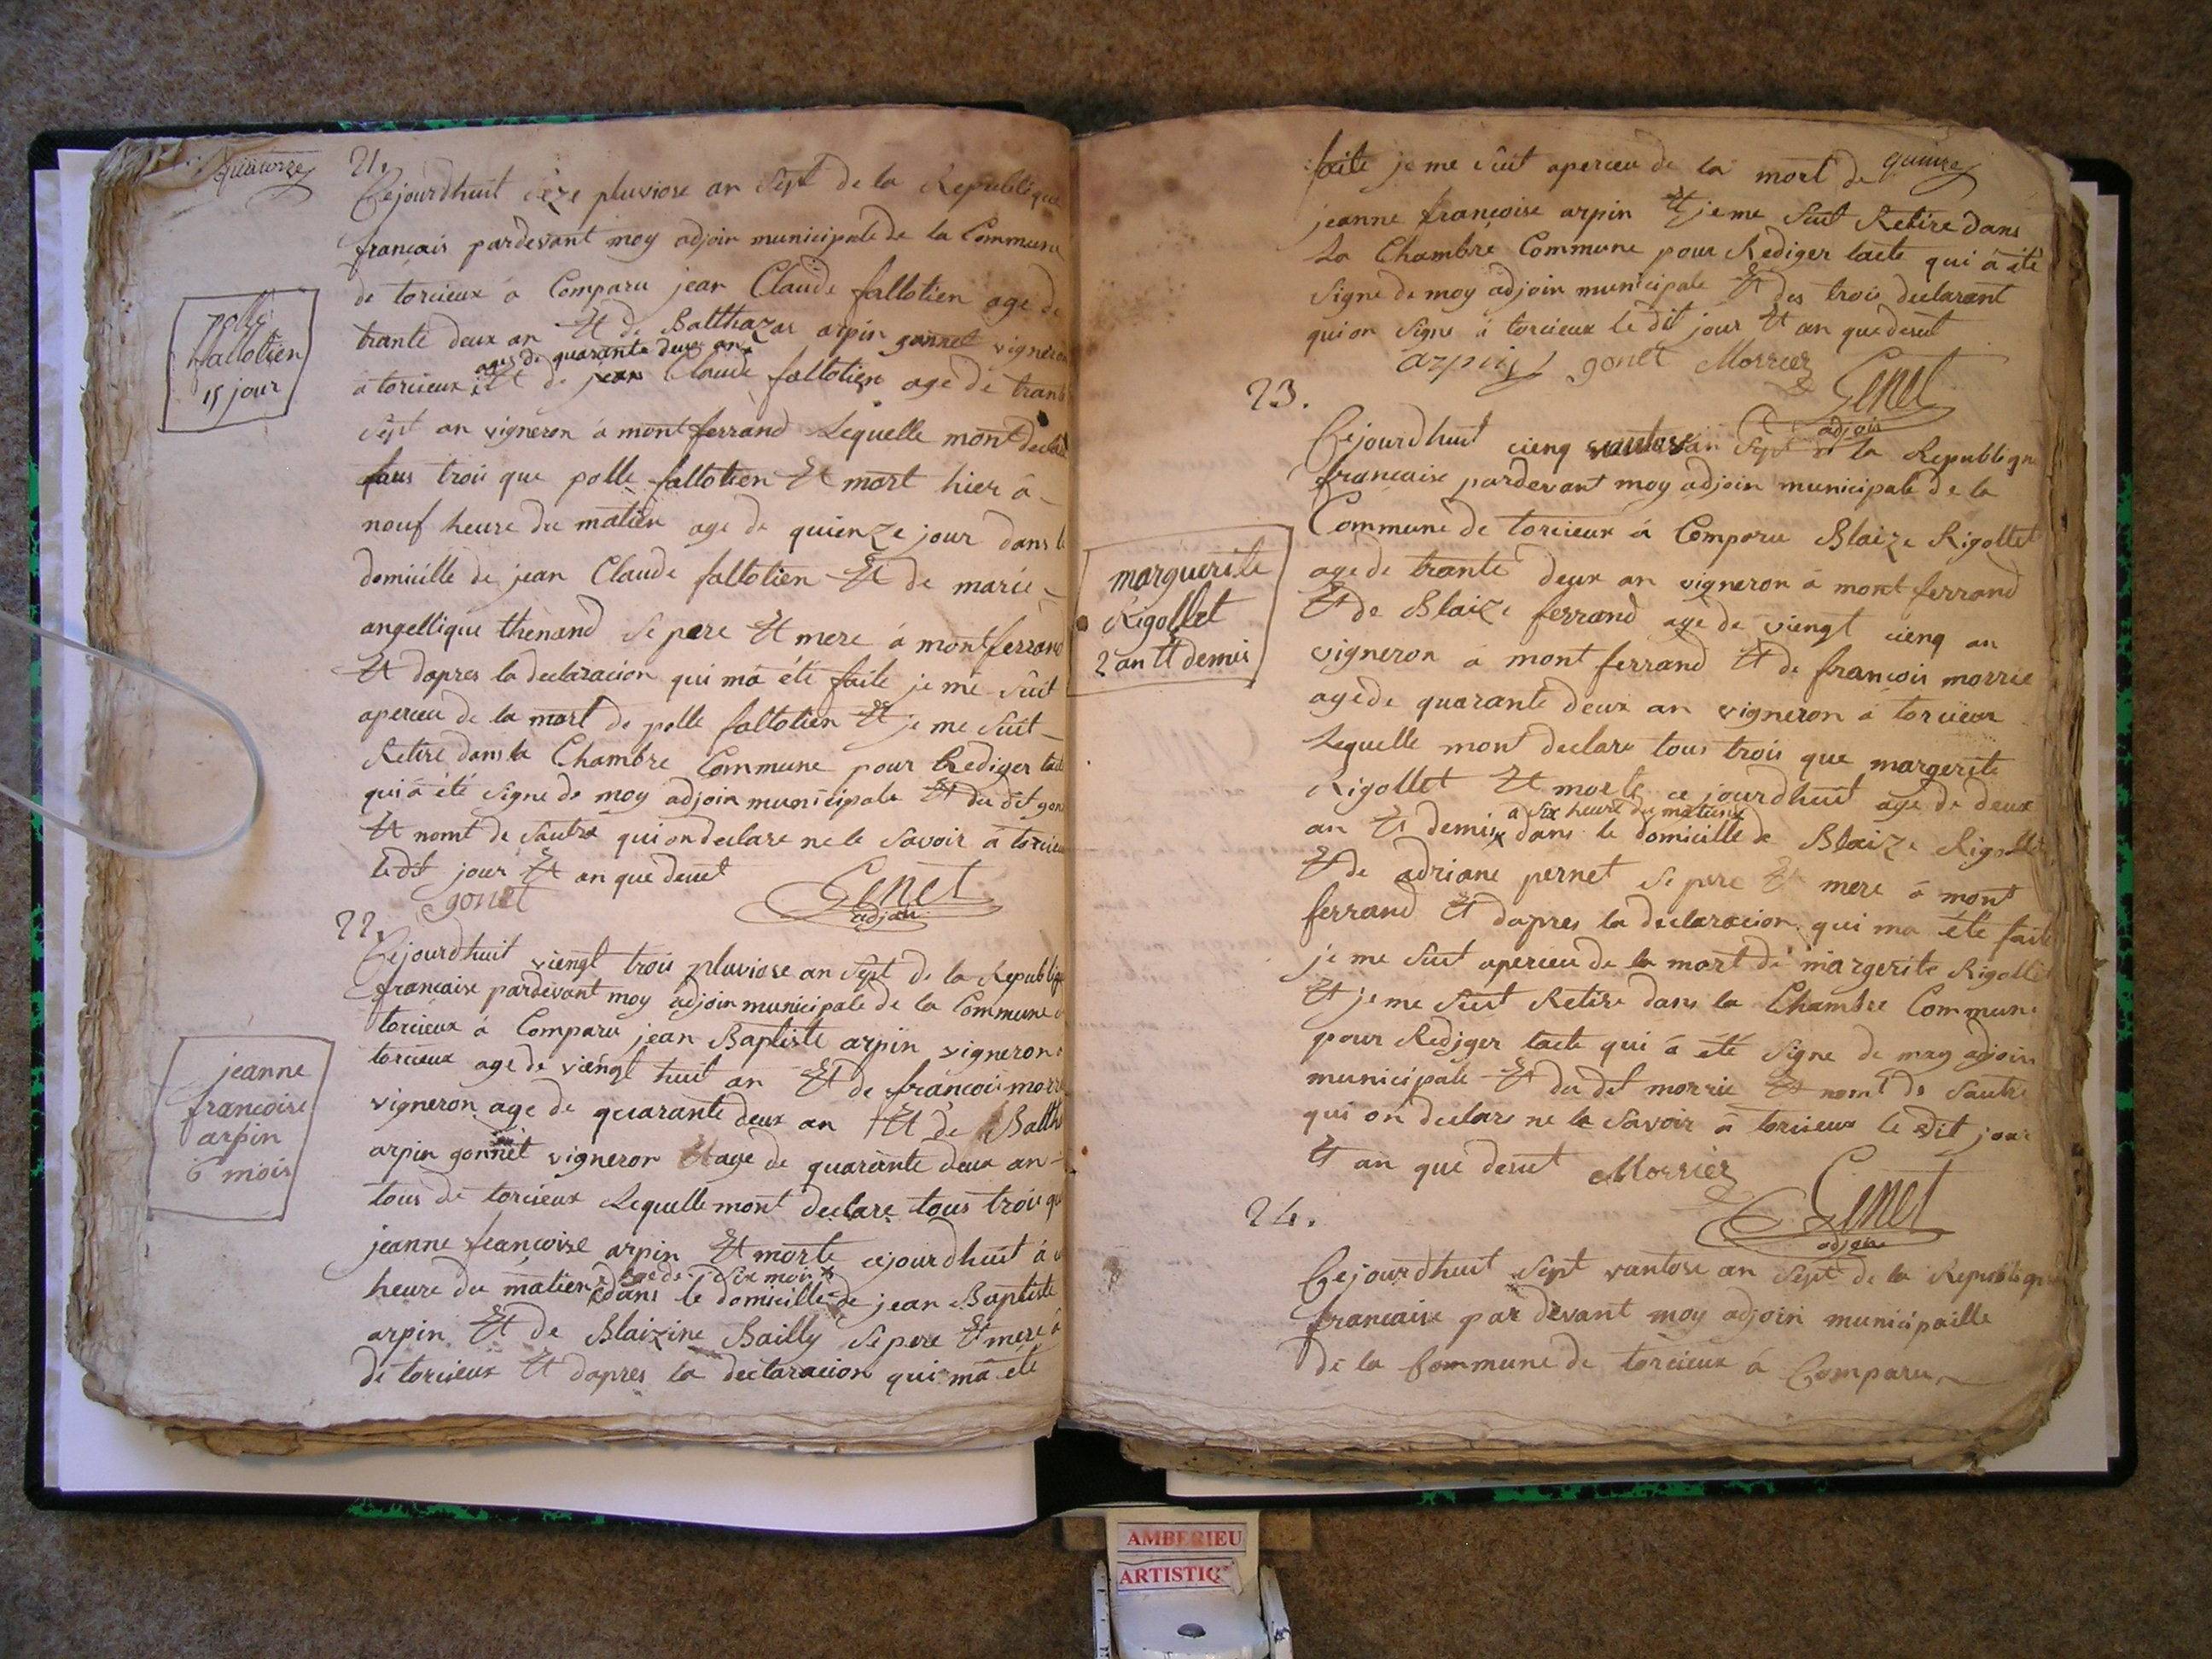 quatorze
21.
Cejourdhuit sèze pluviose an Sept de la Republique
francais pardevant moy adjoin municipale de la Commune
de torcieux a Comparu jean Claude fallotien age de
trante deux an Et de Balthazar arpin gonnet vigneron
age de quarante deux an
à torcieux Et de jean Claude fallotien age de trante
Sept an vigneron à mont ferrand Lequelle mont declare
tous trois que polle fallotien Et mort hier à
nouf heure du matien age de quienze jour dans le
domicille de jean Claude fallotien Et de marie
angellique thenand Se pere Et mere à mont ferrand
Et dapres la declaracion qui ma été faite je me Suit
aperceu de la mort de polle fallotien Et je me Suit
Retire dans la Chambre Commune pour Rediger lacte
qui à été Signe de moy adjoin municipale Et du dit gon
Et nomt de Sautre qui on declare ne le Savoir à torcieu
le dit jour Et an que desut
gonet Genet
adjoin
polle
fallotien
15 jour
22.
Cejourdhuit viengt trois pluviose an Sept de la Republique
francaise pardevant moy adjoin municipale de la Commune
torcieux à Comparu jean Baptiste arpin vigneron
torcieux age de viengt huit an Et de francois morri
vigneron age de quarante deux an Et de Balth
arpin gonnet vigneron Et age de quarante deux an
tous de torcieux Lequelle mont declare tous trois que
jeanne francoise arpin Et morte cejourdhuit à
age de Six mois
heure du matien dans le domicille de jean Baptiste
arpin Et de Blaizine Bailly Se pere Et mere à
de torcieux Et dapres la declaracion qui ma été
jeanne
francoise
arpin
6 mois
quinze
faite je me Suit aperceu de la mort de
jeanne francoise arpin Et je me Suit Retire dans
La Chambre Commune pour Rediger lacte qui à été
Signe de moy adjoin municipale Et des trois declarant
qui on Signe à torcieux le dit jour Et an que desut
arpin gonet Morrier
Genet
adjoin
23.
Cejourdhuit cienq vantose an Sept de la Republique
francaise pardevant moy adjoin municipale de la
Commune de torcieux à Comparu Blaize Rigollet
age de trante deux an vigneron à mont ferrand
Et de Blaize ferrand age de viengt cienq an
vigneron à mont ferrand Et de francois morrie
age de quarante deux an vigneron à torcieux
Lequelle mont declare tous trois que margerite
Rigollet Et morte ce jourdhuit age de deux
à Six heure du matien
an Et demis dans le domicille de Blaize Rigollet
Et de adriane pernet Se pere Et mere à mont
ferrand Et dapres la declaracion qui ma été faite
je me Suit aperceu de la mort de margerite Rigollet
Et je me Suit Retire dans la Chambre Commune
pour Rediger lacte qui à été Signe de moy adjoin
municipale Et du dit morrie Et nomt de Sautre
qui on declare ne le Savoir à torcieux le dit jour
Et an que desut Morrier
Genet
adjoin
marguerite
Rigollet
2 an Et demis
24.
Cejourdhuit Sept vantose an Sept de la Republique
francaise par devant moy adjoin municipaille
de la Commune de torcieux à Comparu
AMBERIEU
ARTISTIQ